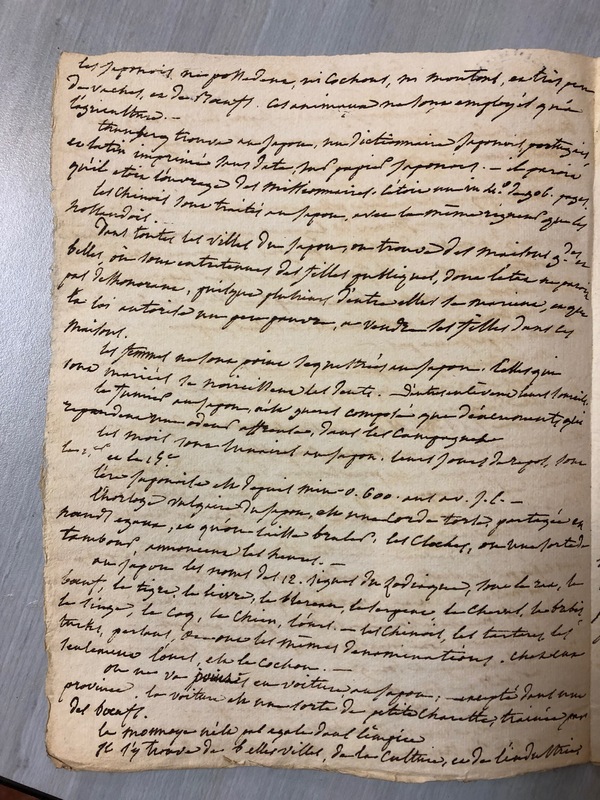 Les Japonois, ne possedent, ni cochons, ni moutons, et très peu
de vaches, et de Boeufs. Ces animaux ne sont employés qu'à
l'agriculture. —
thunberg trouva au Japon, un dictionnaire Japonois, portugais,
et latin imprimé sans date, sur papier Japonois. — il paroit
qu'il est l'ouvrage des missionnaires. C'étoit un in 4° de 906. pages.
Les Chinois sont traités au Japon, avec la même rigueur que les
hollandois. —
Dans toutes les villes du Japon, on trouve des maisons
belles, où sont entretenues des filles publiques, dont l'état ne paroit
pas deshonorant, puisque plusieurs d'entre elles se marient, et que
la loi autorise un père pauvre, à vendre ses filles dans ces
maisons.
Les femmes ne sont point sequestrées au Japon. Celles qui
sont mariées se noircissent les dents.
le fumier au Japon, n'est guères composé que d'excréments qui
repandent une odeur affreuse, dans les Campagnes
les mois sont lunaires au Japon. leurs jours de repos, sont
le 1er et le 15e
l'ère Japonoise est depuis 600. ans av. J.C. —
l'horloge vulgaire du Japon, est une corde torse, partagée en
noeuds egaux, et qu'on laisse bruler. les cloches, ou une sorte de
tambour, annoncent les heures. —
au Japon les noms des 12. signes du Zodiaque, sont le rat, le
boeuf, le tigre, le lievre, le serpent, le cheval, la brebis
le singe, le coq, le chien, l'ours. — les Chinois, les tartares, les
turcs, persans, ont les mêmes denominations. chez eux
seulement l'ours, est le cochon. —
on ne va en voiture au Japon; — excepté dans une
province. la voiture est une sorte de petite charrette, trainée par
des boeufs.
la monnoye n'est pas egale dans l'empire
Il s'y trouve de belles villes, de la culture, et de l'industrie